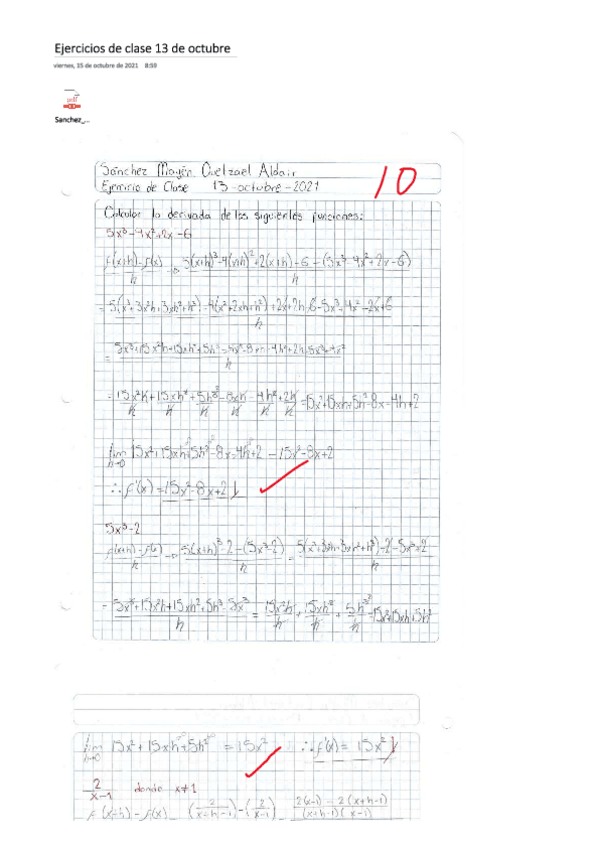 Ejercicios de clase 13 de octubre
viernes, 15 de octubre de 2021 8:59
pdf
Sanchez_...
Sánchez Mayén Quetzael Aldair
Ejercicio de Clase 13-octubre-2021
10
Calcular la derivada de las siguientes funciones:
5x³-4x²+2x-6
f(x+h)-f(x) / h → 5(x+h)³-4(x+h)²+2(x+h)-6-(5x³-4x²+2x-6) / h
= 5(x³+3x²h+3xh²+h³)-4(x²+2xh+h²)+2x+2h-6-5x³+4x²-2x+6 / h
= 15x²h/h + 15xh²/h + 5h³/h - 8xh/h - 4h²/h + 2h/h = 15x²+15xh+5h²-8x-4h+2
lim h→0 15x²+15xh+5h²-8x-4h+2 = 15x²-8x+2
∴ f'(x) = 15x²-8x+2
5x³-2
f(x+h)-f(x) / h → 5(x+h)³-2-(5x³-2) / h = 5(x³+3x²h+3xh²+h³)-2-5x³+2 / h
= 5x³+15x²h+15xh²+5h³-5x³ / h = 15x²h/h + 15xh²/h + 5h³/h = 15x²+15xh+5h²
lim h→0 15x²+15xh+5h² = 15x² ∴ f'(x) = 15x²
2/x-1 donde x≠1
f(x+h)-f(x) (2/x+h-1)-(2/x-1) 2(x-1)-2(x+h-1) / (x+h-1)(x-1)